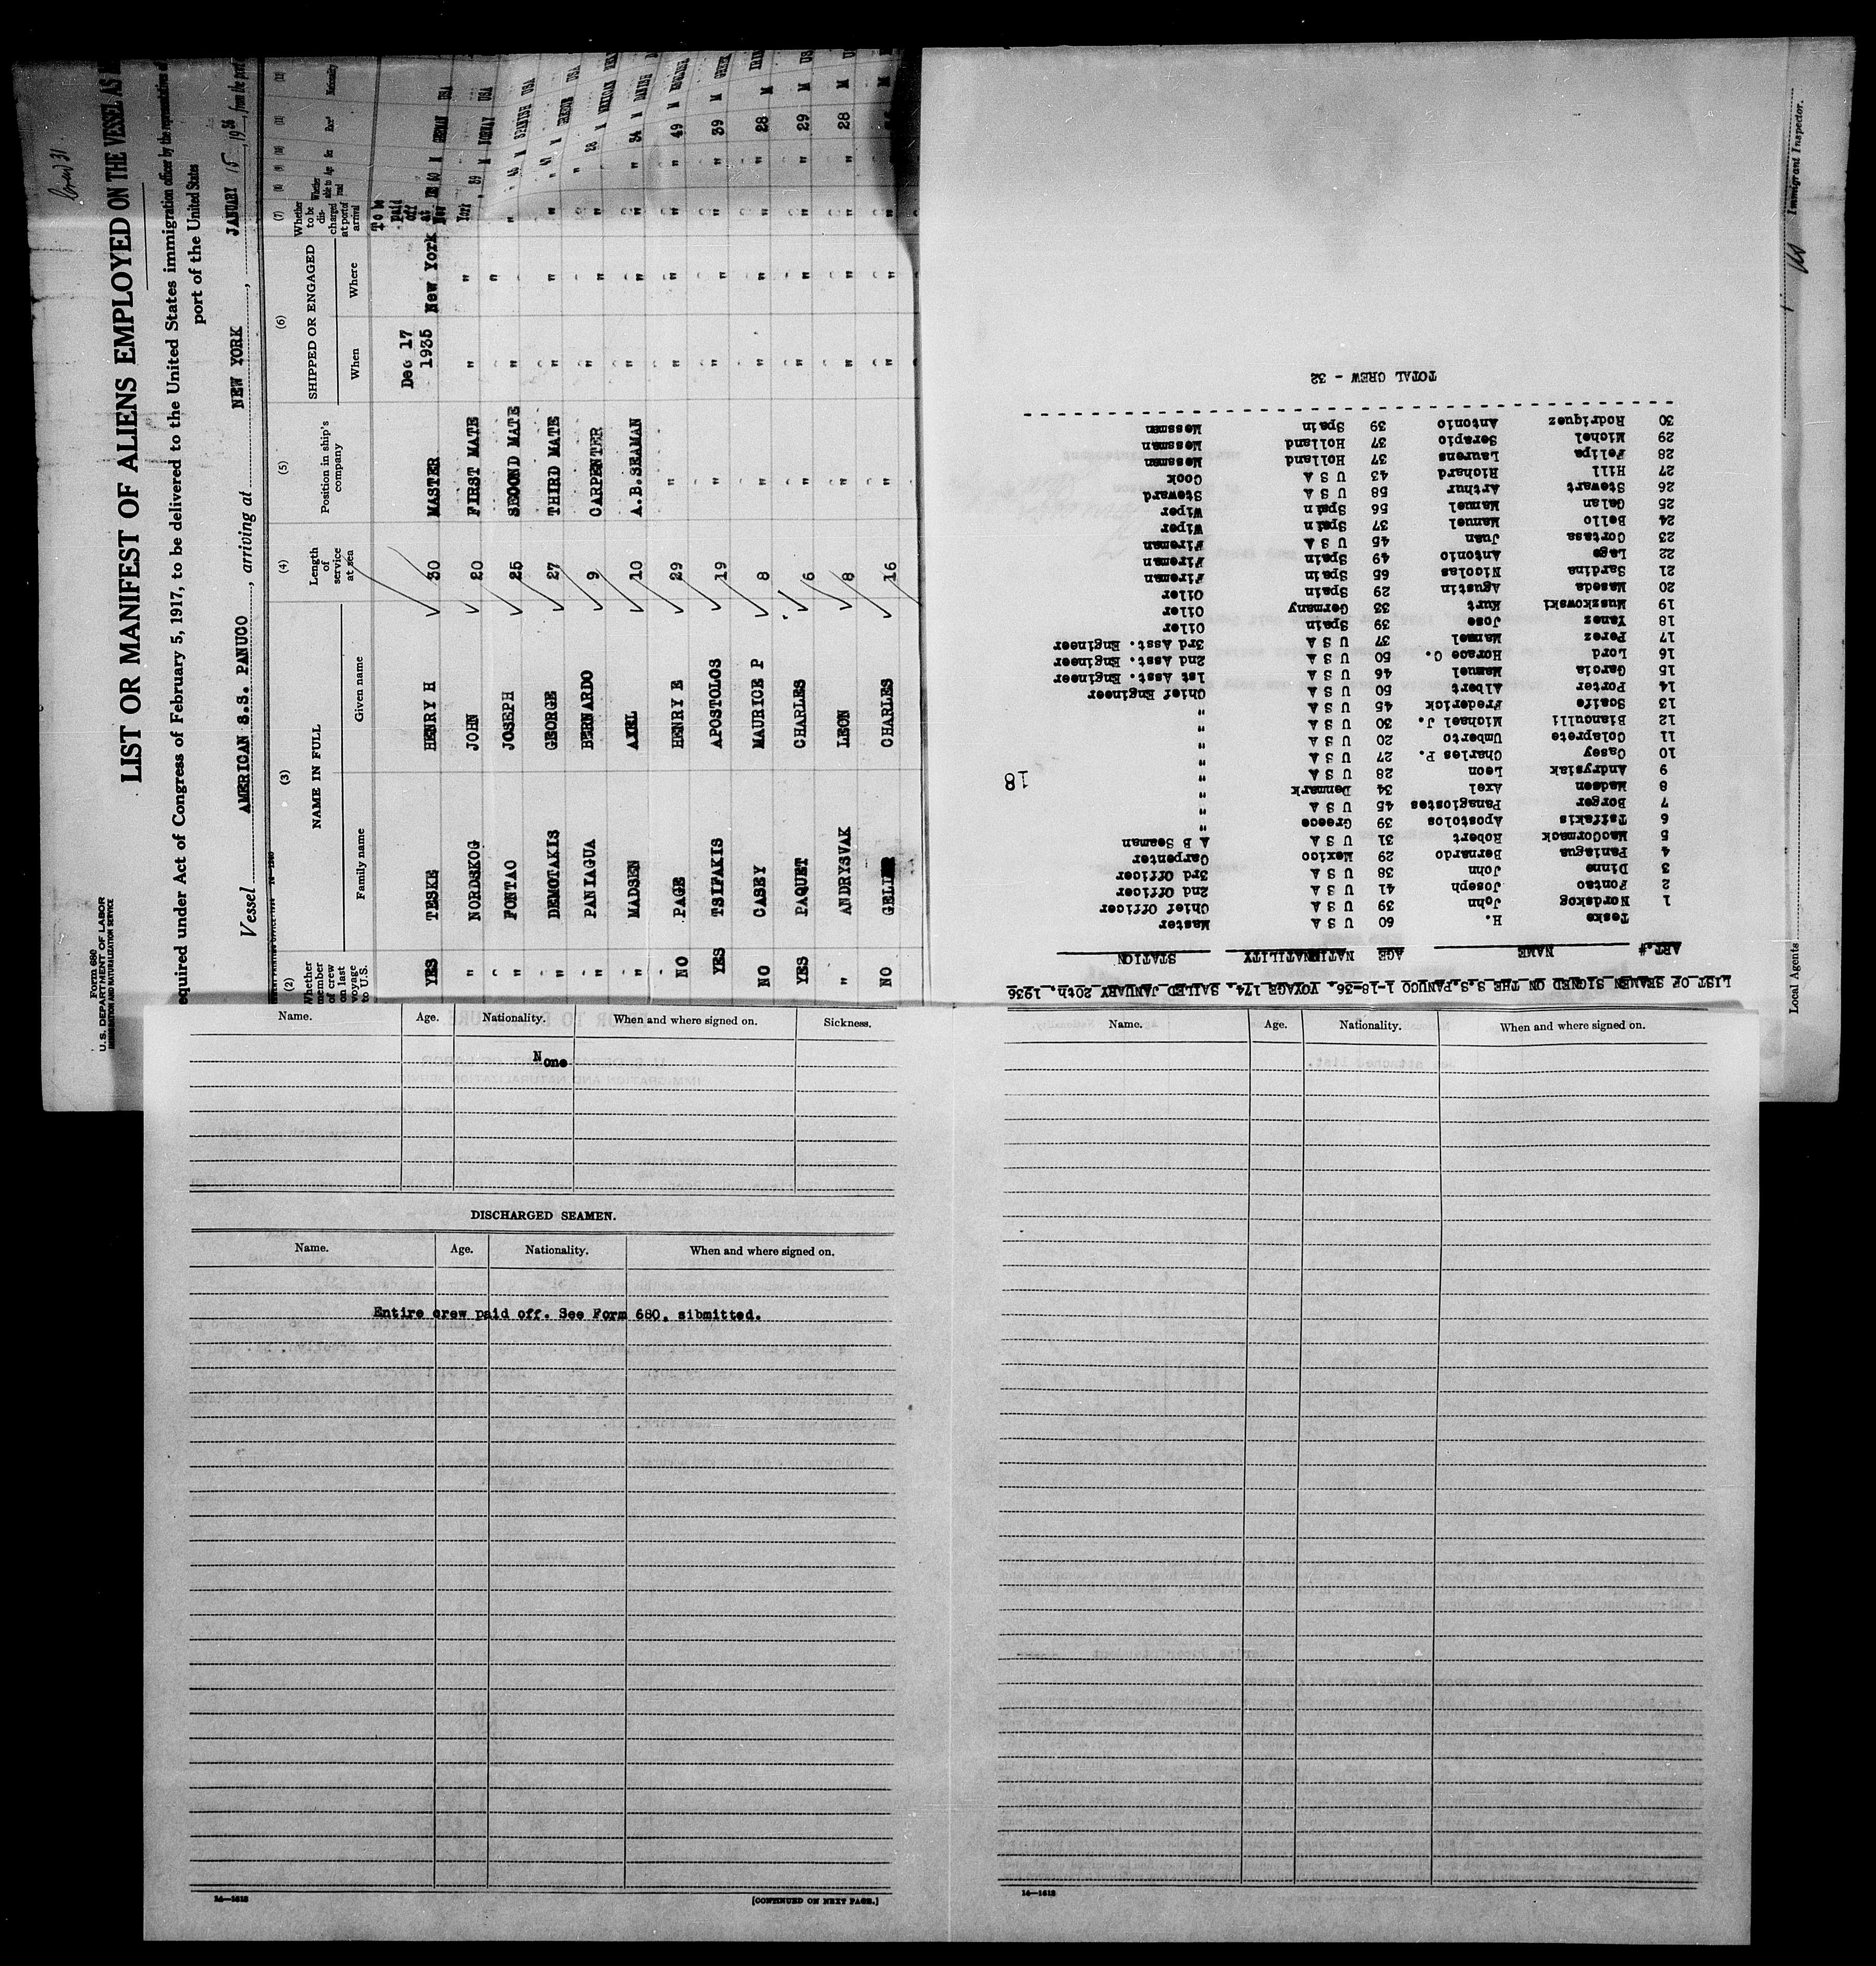 Form 680
U.S. DEPARTMENT OF LABOR
IMMIGRATION AND NATURALIZATION SERVICE
LIST OR MANIFEST OF ALIENS EMPLOYED ON THE VESSEL AS
equired under Act of Congress of February 5, 1917, to be delivered to the United States immigration officer by the representatives of
port of the United States
Vessel AMERICAN S.S. PANUCO, arriving at NEW YORK, JANUARY 15, 1936, from the port
(2) (3) (4) (5) (6) (7)
Whether member of crew on last voyage to U.S. NAME IN FULL Length of service at sea Position in ship's company SHIPPED OR ENGAGED Whether to be discharged at port of arrival
Family name Given name When Where
YES TESKE HENRY H 30 MASTER Dec 17 1935 New York To be paid off at New York 60 M GERMAN USA
" NORDSKOG JOHN 20 FIRST MATE " " 39 M NORWAY USA
" FONTAO JOSEPH 25 SECOND MATE " " " M SPANISH USA
" DEMOTAKIS GEORGE 27 THIRD MATE " " " M USA
" PANIAGUA BERNARDO 9 CARPENTER " " " 28 M MEXICAN
" MADSEN AXEL 10 A.B.SEAMAN " " " 34 M DANISH
NO PAGE HENRY E 29 " " " " 49 M ENGLISH
YES TSIFAKIS APOSTOLOS 19 " " " " 39 M GREEK
NO CASEY MAURICE P 8 " " " " 28 M
YES PAQUET CHARLES 6 " " " " 29 M US
" ANDRYSVAK LEON 8 " " " " 28 M
NO CHARLES 16 " " " " M
LIST OF SEAMEN SIGNED ON THE S.S.PANUCO 1-18-36. VOYAGE 174. SAILED JANUARY 20th. 1936
ART.# NAME AGE NATIONATILITY STATION
Teske H. 60 U S A Master
1 Nordskog John 39 U S A Chief Officer
2 Fontao Joseph 41 U S A 2nd Officer
3 Dinne John 38 U S A 3rd Officer
4 Paniagua Bernardo 29 Mexico Carpenter
5 MacCormack Robert 31 U S A A B Seaman
6 Tsifakis Apostolos 39 Greece "
7 Borger Panagiostes 45 U S A "
8 Madsen Axel 34 Denmark "
9 Andrysiak Leon 28 U S A "
10 Casey Charles P. 27 U S A "
11 Colaprete Umberto 20 U S A "
12 Bianculli Michael J. 30 U S A "
13 Scaife Frederick 45 U S A "
14 Porter Albert 50 U S A Chief Engineer
15 Garcia Manuel 46 U S A 1st Asst. Engineer
16 Lord Horace C. 50 U S A 2nd Asst. Engineer
17 Perez Manuel 37 U S A 3rd Asst. Engineer
18 Yanez Jose 39 Spain Oiler
19 Muszkowski Kurt 33 Germany Oiler
20 Maseda Agustin 29 Spain Oiler
21 Sardina Nicolas 65 Spain Fireman
22 Lage Antonio 49 Spain Fireman
23 Cortasa Juan 45 U S A Fireman
24 Bello Manuel 37 Spain Wiper
25 Galan Manuel 56 Spain Wiper
26 Stewart Arthur 58 U S A Steward
27 Hill Richard 43 U S A Cook
28 Felipa Laurens 37 Holland Messman
29 Michel Serapio 37 Holland Messman
30 Rodriquez Antonio 39 Spain Messman
TOTAL CREW - 32
18
Local Agents
Immigrant Inspector.
Name. Age. Nationality. When and where signed on. Sickness.
None
DISCHARGED SEAMEN.
Name. Age. Nationality. When and where signed on.
Entire crew paid off. See Form 680, sibmitted.
14—1618
[CONTINUED ON NEXT PAGE.]
Name. Age. Nationality. When and where signed on.
14—1618